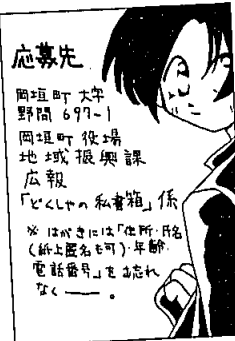 応募先
岡垣町大字
野間697-1
岡垣町役場
地域振興課
広報
「どくしゃの私書箱」係
※はがきには「住所・氏名
(紙上匿名も可)・年齢・
電話番号」を忘れ
なく――。